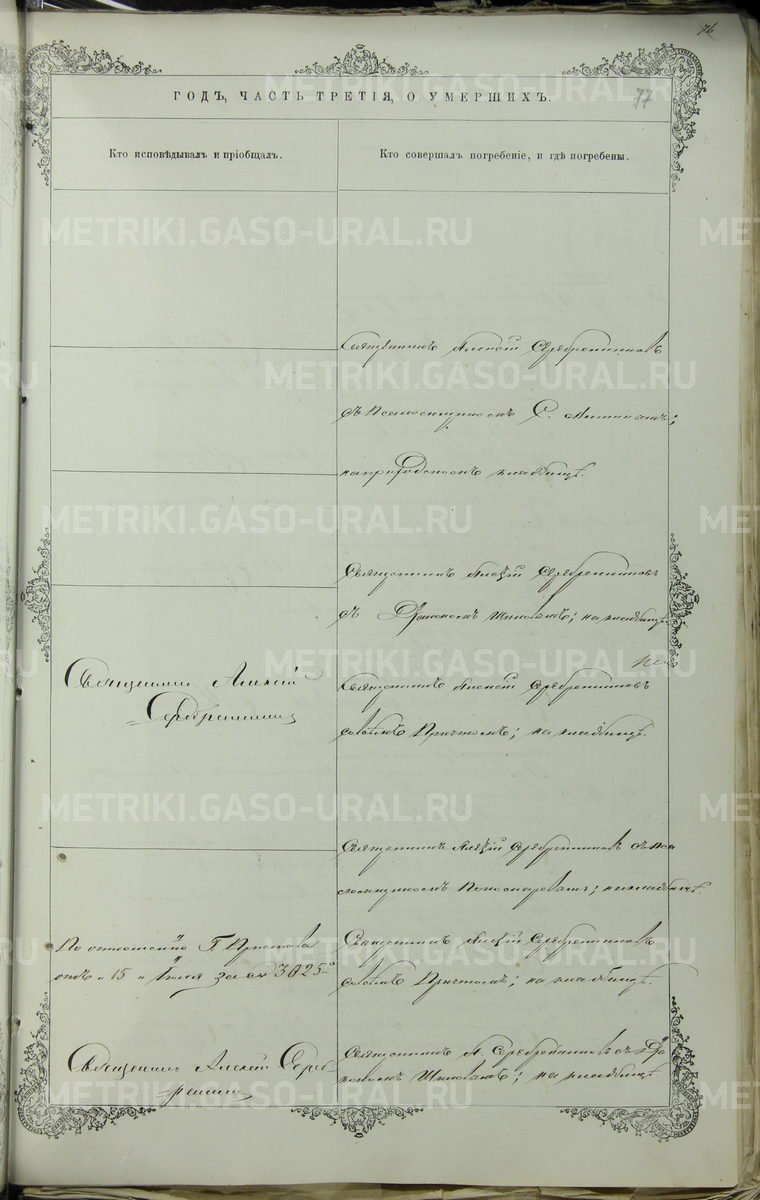 76
77
ГОДЪ, ЧАСТЬ ТРЕТІЯ, О УМЕРШИХЪ.
Кто исповѣдывалъ и пріобщалъ.
Кто совершалъ погребеніе, и гдѣ погребены.
Священникъ Алексій Серебренниковъ
съ Псаломщикомъ С.
на приходскомъ кладбищѣ.
Священникъ Алексій Серебренниковъ
съ Діакономъ; на кладбищѣ
Священникъ Алексій
Серебренниковъ
Священникъ Алексій Серебренниковъ
со всѣмъ Причтомъ; на кладбищѣ.
Священникъ Алексій Серебренниковъ съ Пса
ломщикомъ Пономаревымъ; на кладбищѣ.
По отношенію Г. Пристава
отъ „15„ Іюля за № 3025
Священникъ Алексій Серебренниковъ
со всѣмъ Причтомъ; на кладбищѣ.
Священникъ Алексій Сереб
ренниковъ
Священникъ А. Серебренниковъ съ Діа
кономъ; на кладбищѣ.
METRIKI.GASO-URAL.RU